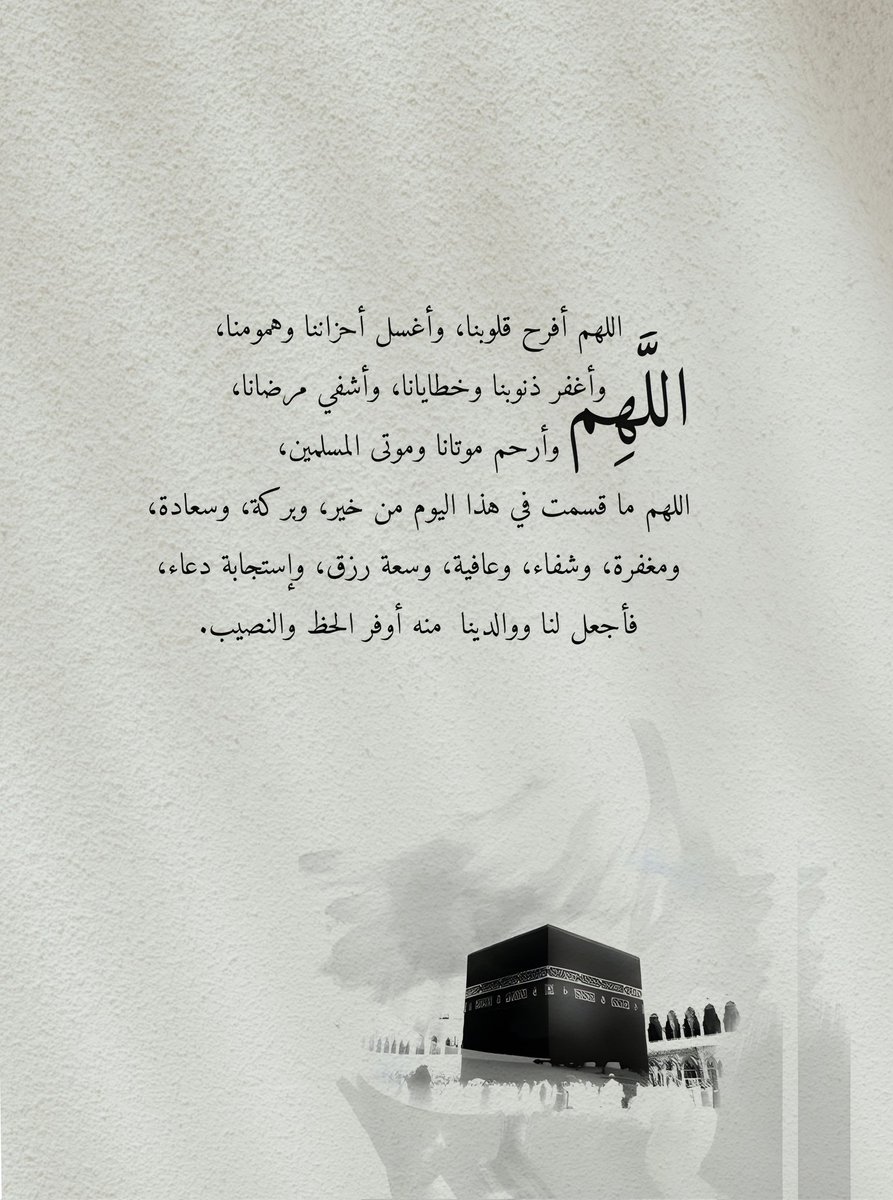 اللهم أفرح قلوبنا، وأغسل أحزاننا وهمومنا،
اللَّهِم
وأغفر ذنوبنا وخطايانا، وأشفي مرضانا،
وأرحم موتانا وموتى المسلمين،
اللهم ما قسمت في هذا اليوم من خير، وبركة، وسعادة،
ومغفرة، وشفاء، وعافية، وسعة رزق، وإستجابة دعاء،
فأجعل لنا ووالدينا منه أوفر الحظ والنصيب.